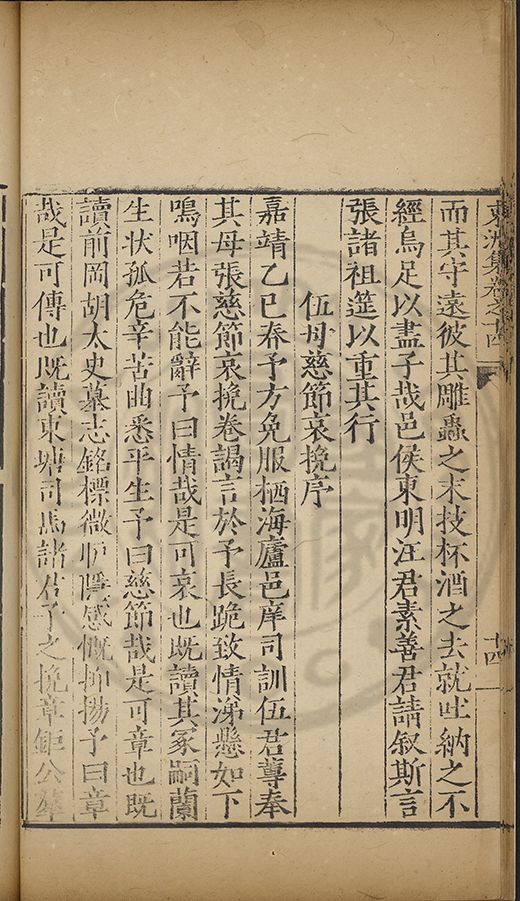 東洲集卷之十四
十四
而其守遠彼其雕蟲之末技杯酒之去就吐納之不
經烏足以盡子哉邑侯東明汪君素善君請叙斯言
張諸祖筵以重其行
伍母慈節哀挽序
嘉靖乙巳春予方免服栖海廬邑庠司訓伍君蓴奉
其母張慈節哀挽卷謁言於予長跪致情涕懸如下
嗚咽若不能辭予曰情哉是可哀也既讀其冢嗣蘭
生狀孤危辛苦曲悉平生予曰慈節哉是可章也既
讀前岡胡太史墓志銘標微闡隱感慨抑揚予曰章
哉是可傳也既讀東塘司馬諸君子之挽章鉅公